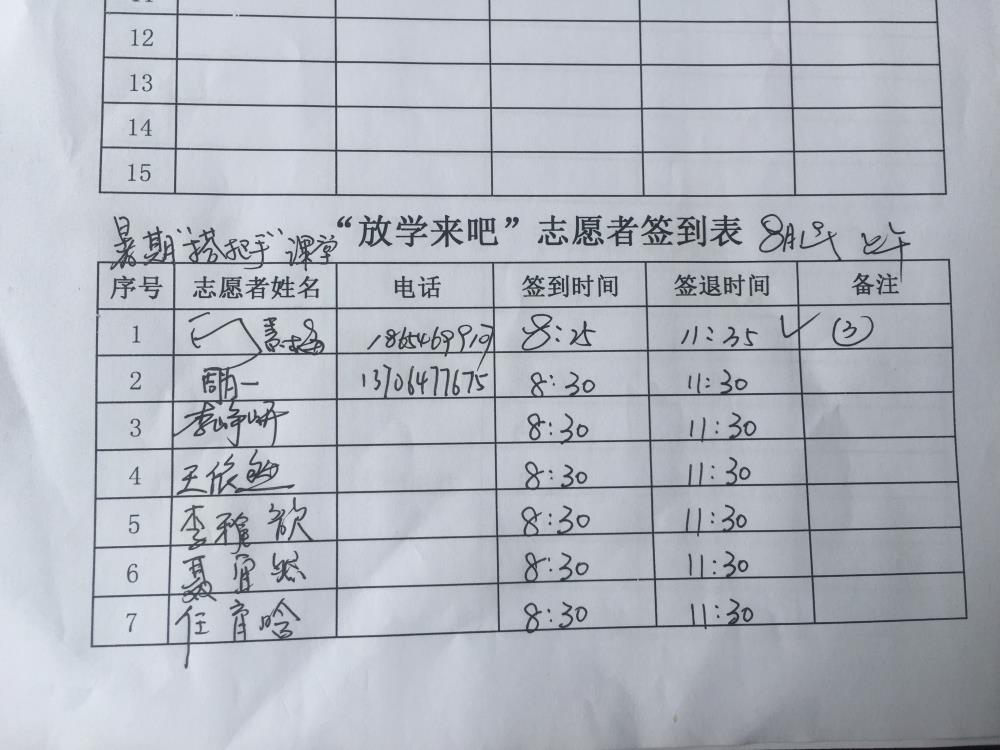 12
13
14
15
暑期“搭起手”课堂 “放学来吧”志愿者签到表 上午
序号 志愿者姓名 电话 签到时间 签退时间 备注
1 8:25 11:35 ✓ (3)
2 周一 13706477675 8:30 11:30
3 李峥妍 8:30 11:30
4 王欣 8:30 11:30
5 李雅歆 8:30 11:30
6 聂宜然 8:30 11:30
7 任育晗 8:30 11:30